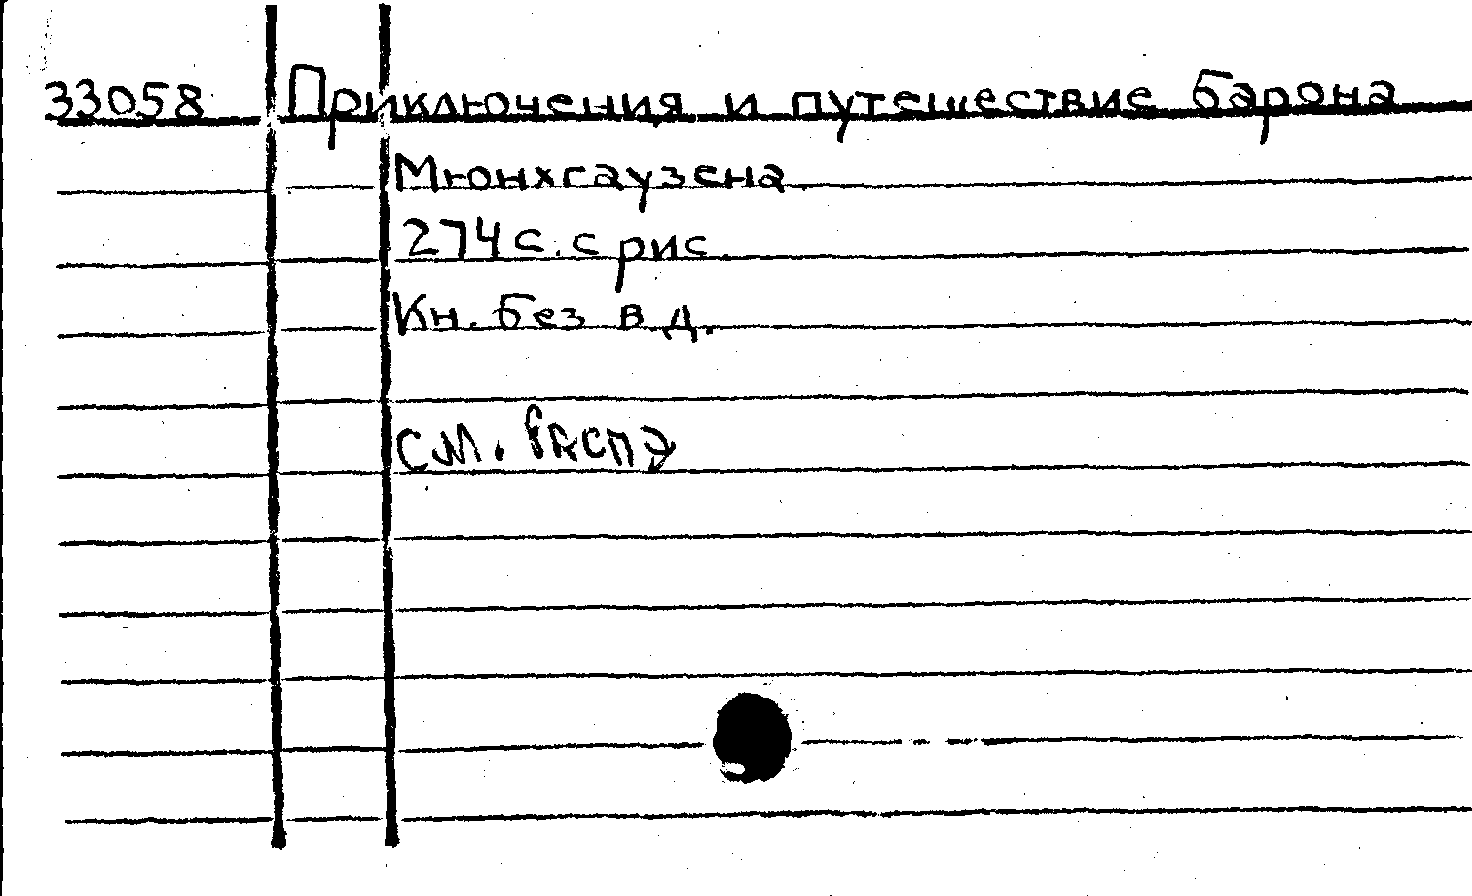 33058 Приключения и путешествие барона
Мюнхгаузена
274 с. с рис.
Кн. без в. д.
см. Распэ